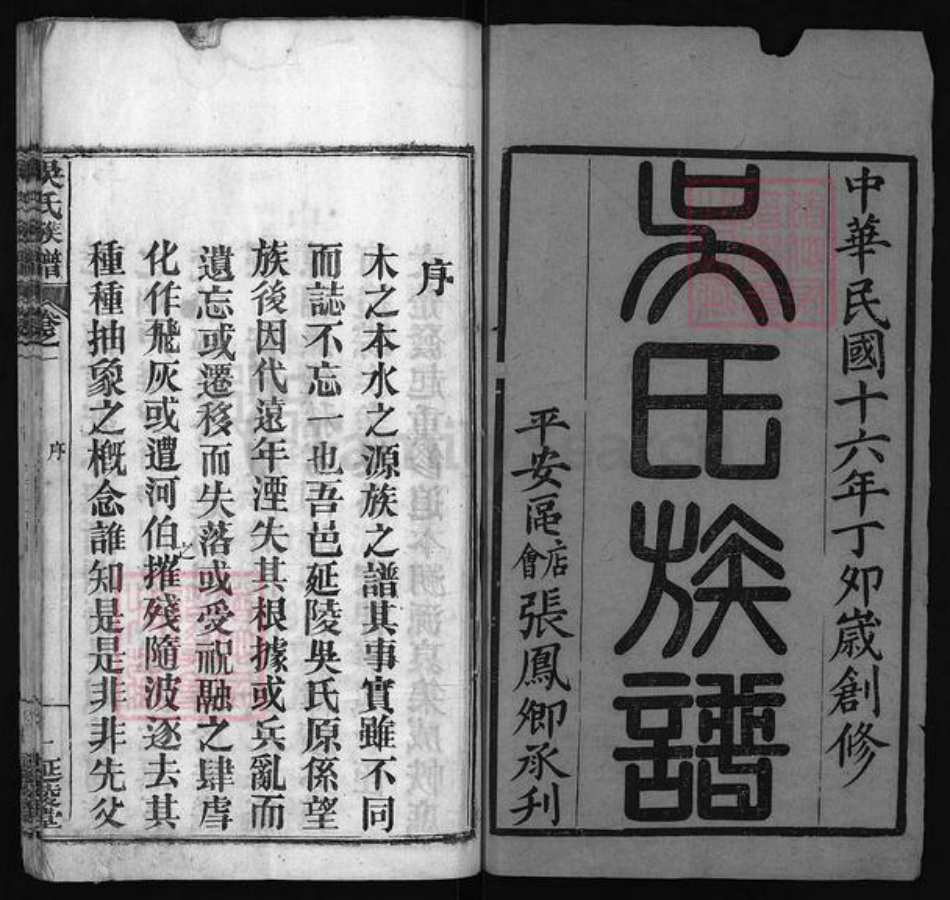 中華民國十六年丁卯歲創修
吳氏族譜
平安區店會張鳳鄉承刋
序
木之本水之源族之譜其事實雖不同
而誌不忘一也吾邑延陵吳氏原係望
族後因代遠年湮失其根據或兵亂而
遺忘或遷移而失落或受祝融之肆虐
化作飛灰或遭河伯之摧殘隨波逐去其
種種抽象之概念誰知是是非非先父
吳氏族譜
卷之一
序
一
延陵堂